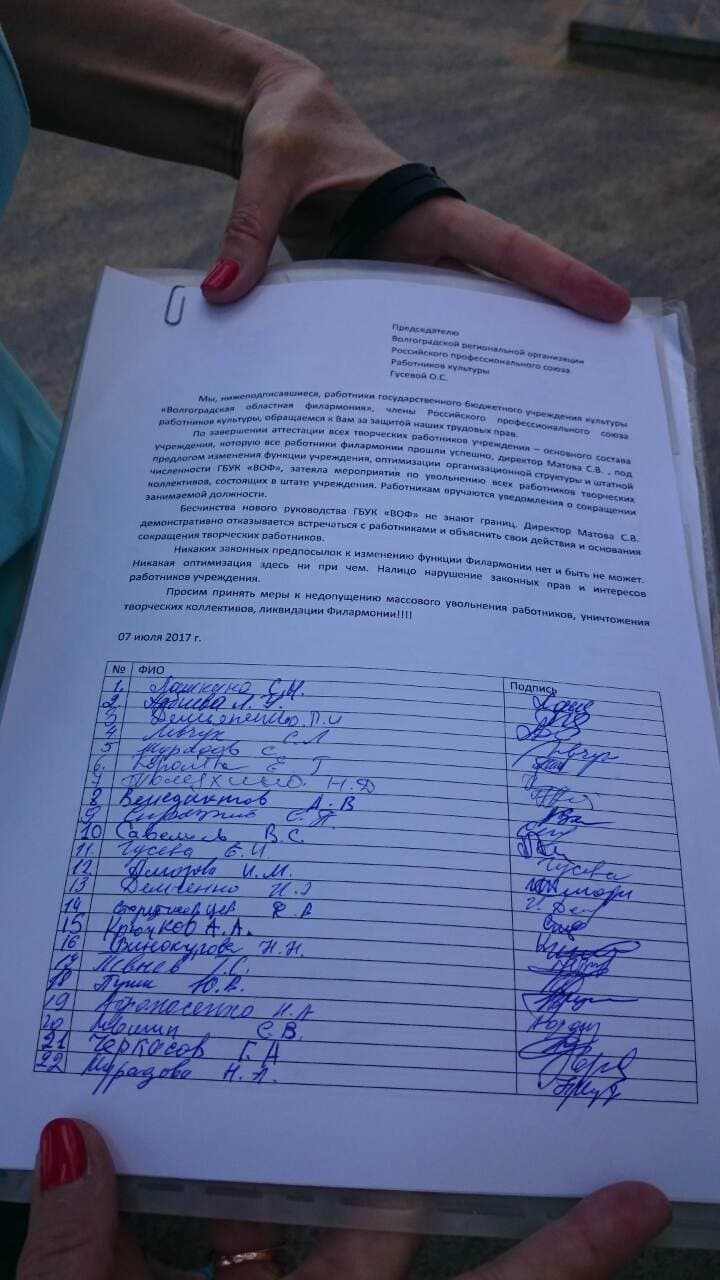 Председателю
Волгоградской региональной организации
Российского профессионального союза
Работников культуры
Гусевой О.С.
Мы, нижеподписавшиеся, работники государственного бюджетного учреждения культуры
«Волгоградская областная филармония», члены Российского профессионального союза
работников культуры, обращаемся к Вам за защитой наших трудовых прав.
По завершении аттестации всех творческих работников учреждения – основного состава
учреждения, которую все работники филармонии прошли успешно, директор Матова С.В. , под
предлогом изменения функции учреждения, оптимизации организационной структуры и штатной
численности ГБУК «ВОФ», затеяла мероприятия по увольнению всех работников творческих
коллективов, состоящих в штате учреждения. Работникам вручаются уведомления о сокращении
занимаемой должности.
Бесчинства нового руководства ГБУК «ВОФ» не знают границ. Директор Матова С.В.
демонстративно отказывается встречаться с работниками и объяснить свои действия и основания
сокращения творческих работников.
Никаких законных предпосылок к изменению функции Филармонии нет и быть не может.
Никакая оптимизация здесь ни при чем. Налицо нарушение законных прав и интересов
работников учреждения.
Просим принять меры к недопущению массового увольнения работников, уничтожения
творческих коллективов, ликвидации Филармонии!!!!
07 июля 2017 г.
№ ФИО Подпись
1.
2.
3
4
5
6.
7
8 Венедиктов А. В
9
10 Савельев В.С.
11. Гусева Е.И. Гусева
12. И.М.
13 Демиденко
14
15 Крючков А.А.
16 Винокурова Н.Н.
17
18 Ю.В.
19 Афанасенко Н.А
20 С.В.
21 Черкасов Г.А
22 Мурадова Н.Л.